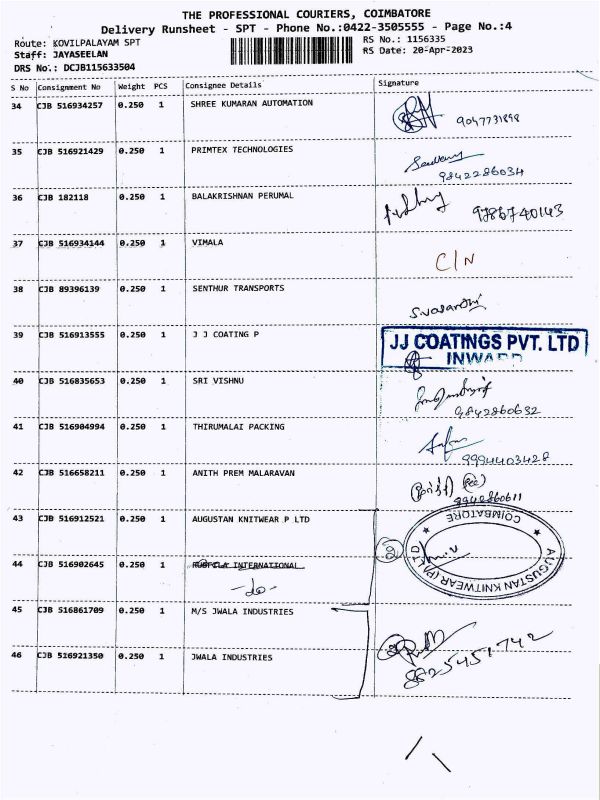 THE PROFESSIONAL COURIERS, COIMBATORE
Delivery Runsheet - SPT - Phone No.:0422-3505555 - Page No.:4
Route: KOVILPALAYAM SPT RS No.: 1156335
Staff: JAYASEELAN RS Date: 20-Apr-2023
DRS No.: DCJB115633504
S No Consignment No Weight PCS Consignee Details Signature
34 CJB 516934257 0.250 1 SHREE KUMARAN AUTOMATION
9047731898
35 CJB 516921429 0.250 1 PRIMTEX TECHNOLOGIES
9842286034
36 CJB 182118 0.250 1 BALAKRISHNAN PERUMAL
9786740143
37 CJB 516934144 0.250 1 VIMALA
C/N
38 CJB 89396139 0.250 1 SENTHUR TRANSPORTS
39 CJB 516913555 0.250 1 J J COATING P
JJ COATINGS PVT. LTD
INWARD
40 CJB 516835653 0.250 1 SRI VISHNU
9842860632
41 CJB 516904994 0.250 1 THIRUMALAI PACKING
9994403428
42 CJB 516658211 0.250 1 ANITH PREM MALARAVAN
9942860611
43 CJB 516912521 0.250 1 AUGUSTAN KNITWEAR P LTD
2
AUGUSTAN KNITWEAR (P) LTD
COIMBATORE
44 CJB 516902645 0.250 1 INTERNATIONAL
-do-
45 CJB 516861709 0.250 1 M/S JWALA INDUSTRIES
46 CJB 516921350 0.250 1 JWALA INDUSTRIES
8825451742